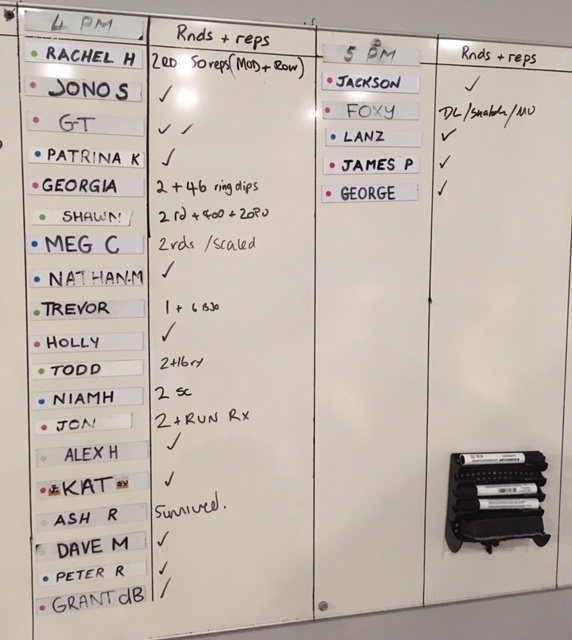 4 PM Rnds + reps
RACHEL H 2RD 50reps (MOD + ROW)
JONO S ✓
GT ✓ ✓
PATRINA K ✓
GEORGIA 2 + 46 ring dips
SHAWN 2 rd + 400 +
MEG C 2rds / scaled
NATHAN.M ✓
TREVOR 1 + 6
HOLLY ✓
TODD 2+16
NIAMH 2 sc
JON 2 + RUN RX
ALEX H ✓
KAT ✓
ASH R Survived.
DAVE M ✓
PETER R ✓
GRANT dB ✓
5 PM Rnds + reps
JACKSON ✓
FOXY DL/Snatch/MU
LANZ ✓
JAMES P ✓
GEORGE ✓